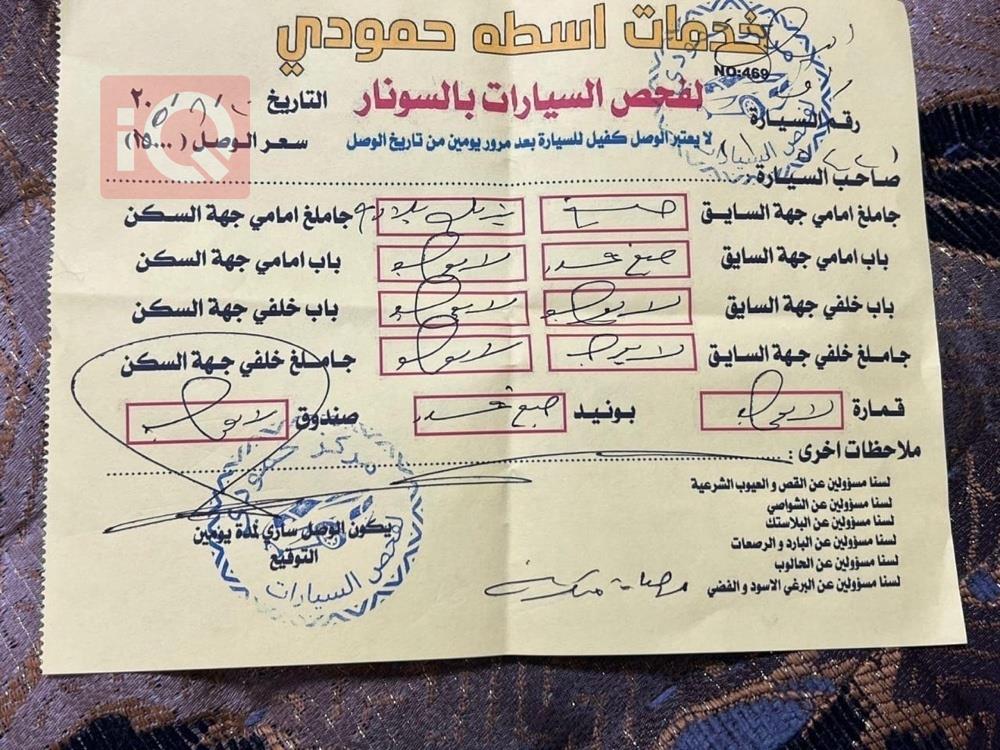 خدمات اسطه حمودي
NO:469
لفحص السيارات بالسونار
التاريخ
رقم السيارة
لا يعتبر الوصل كفيل للسيارة بعد مرور يومين من تاريخ الوصل
سعر الوصل (٢٥٠٠٠)
صاحب السيارة
جاملغ امامي جهة السايق
جاملغ امامي جهة السكن
باب امامي جهة السايق صبغ لا يوجد باب امامي جهة السكن
باب خلفي جهة السايق لا يوجد لا يوجد باب خلفي جهة السكن
جاملغ خلفي جهة السايق لا يوجد لا يوجد جاملغ خلفي جهة السكن
قمارة لا يوجد بونيد صبغ صندوق لا يوجد
ملاحظات اخرى :
لسنا مسؤولين عن القص و العيوب الشرعية
لسنا مسؤولين عن الشواصي
لسنا مسؤولين عن البلاستك
لسنا مسؤولين عن البارد و الرصعات
لسنا مسؤولين عن الحالوب
لسنا مسؤولين عن البرغي الاسود و الفضي
يكون الوصل ساري لمدة يومين
التوقيع
مركز حمودي
لفحص السيارات
iQ